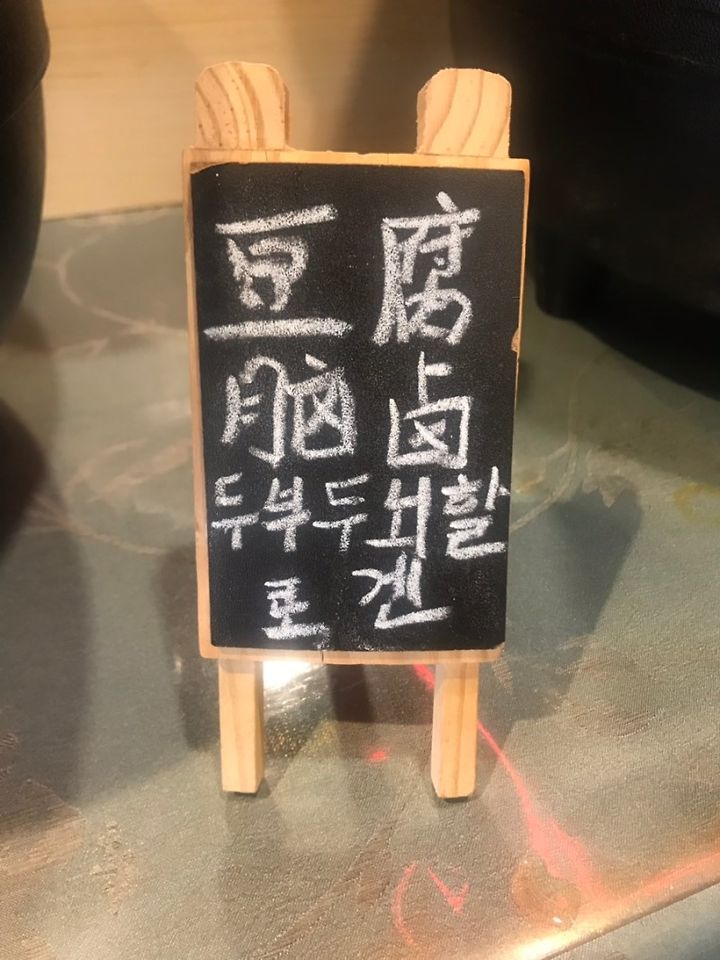 豆腐
脑卤
두부두뇌할
로겐